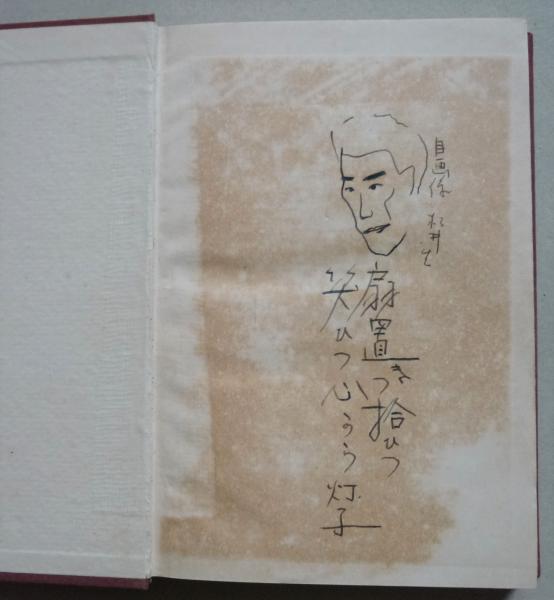 自画像 松井
扇置きつ拾ひつ
笑ひつ心うら 灯子